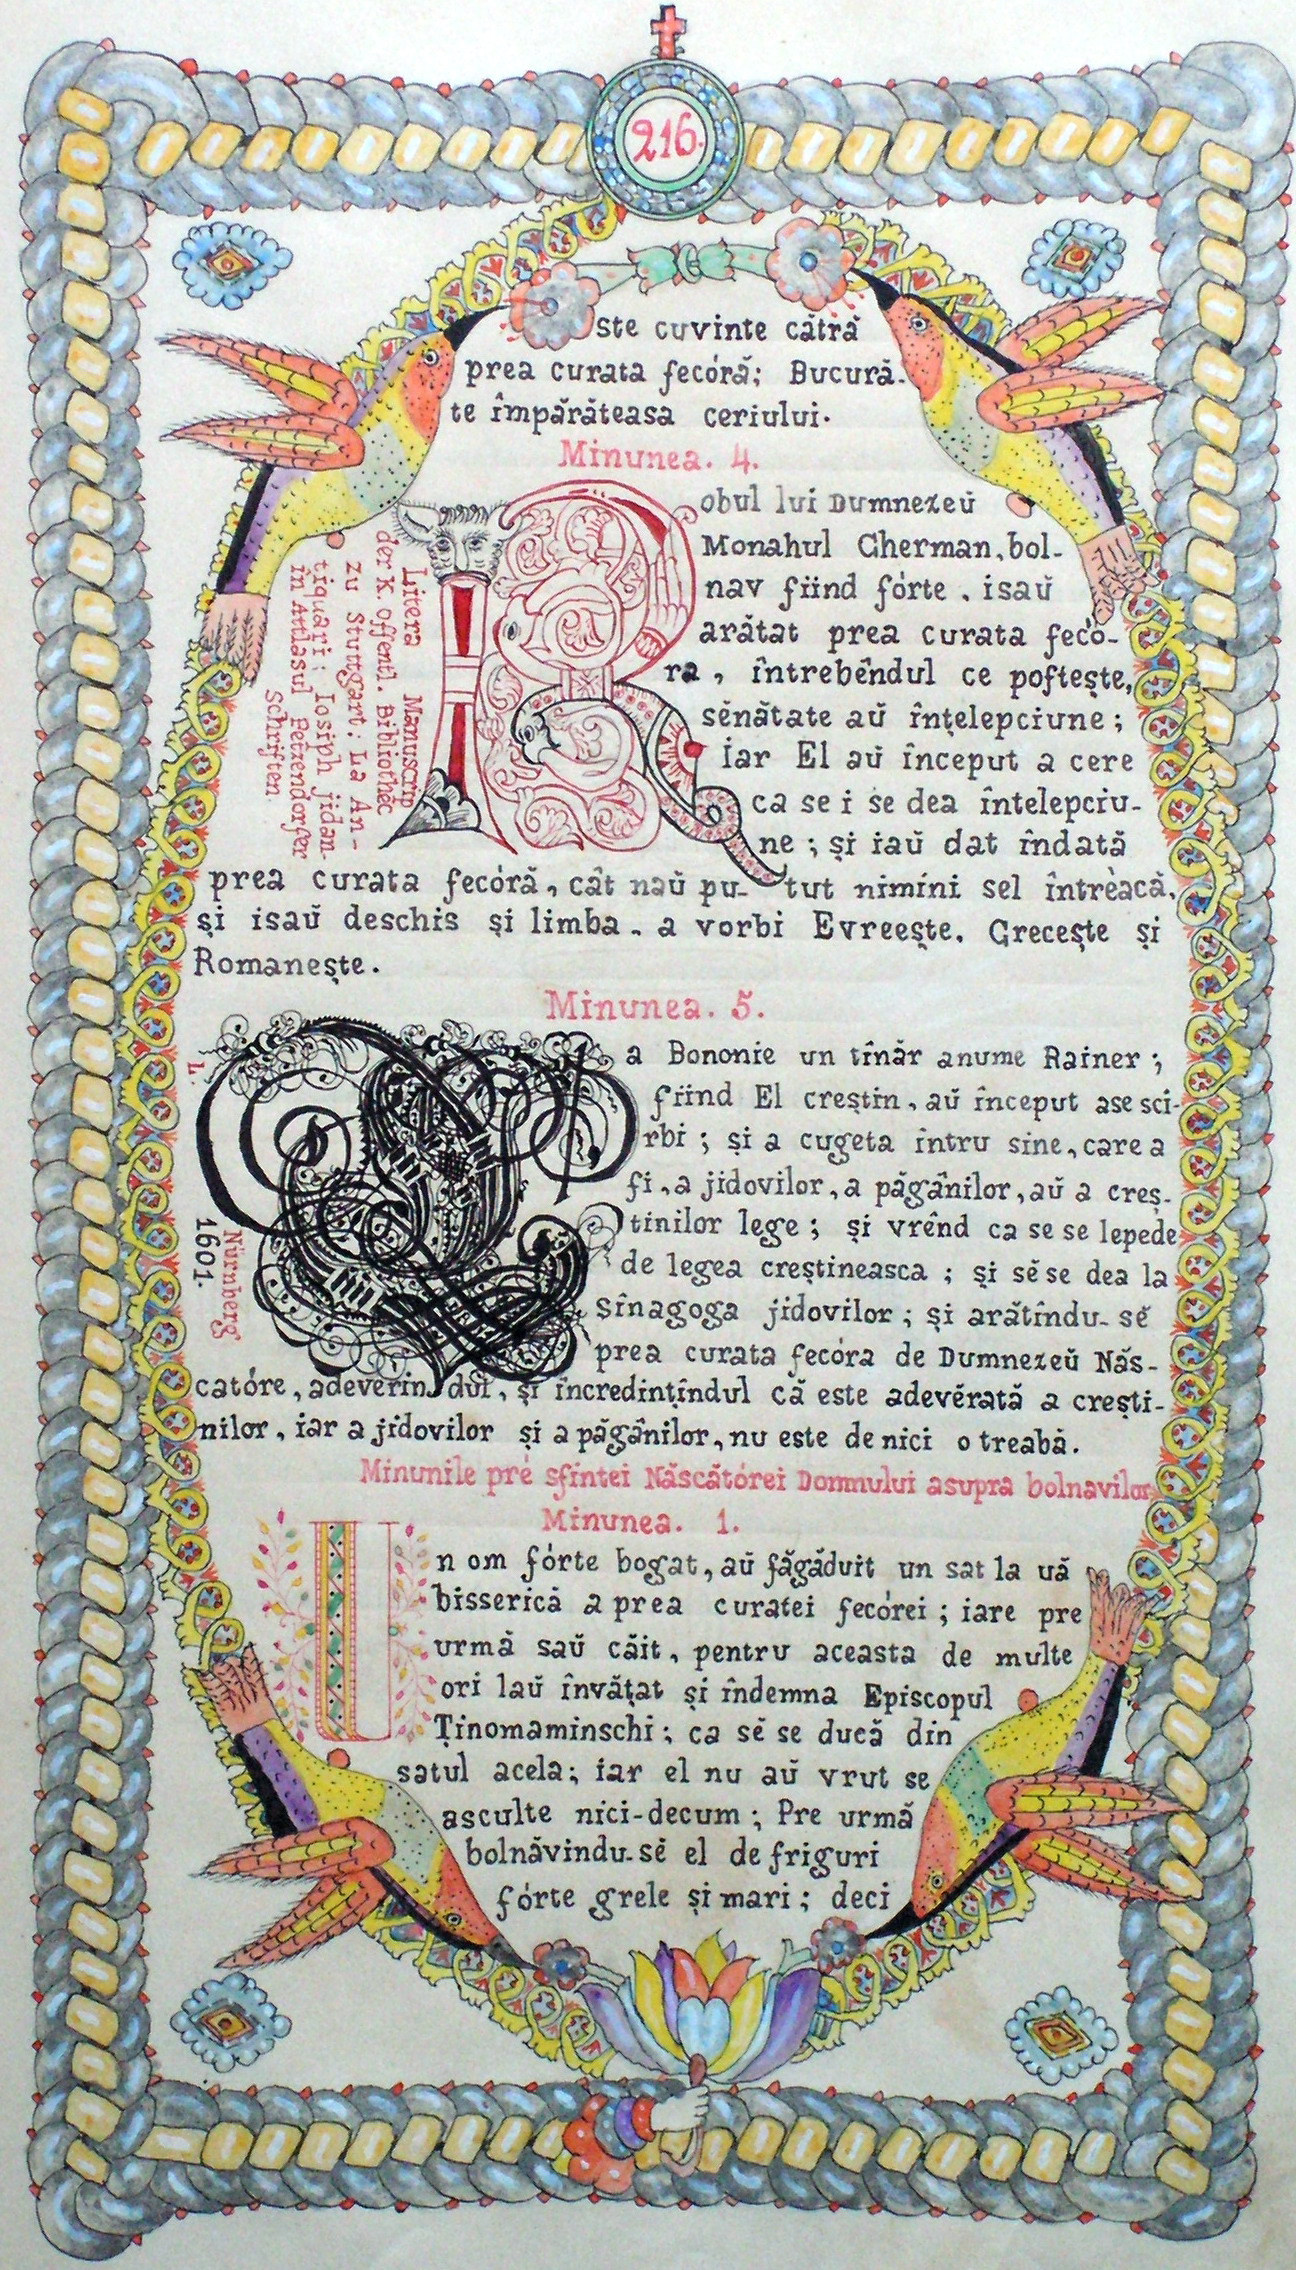 216.
ste cuvinte cătră
prea curata fecóră; Bucură-
te împărăteasa ceriului.
Minunea. 4.
R
obul lui Dumnezeŭ
Monahul Gherman, bol-
nav fiind fórte, isaŭ
arătat prea curata fecó-
ra, întrebêndul ce poftește,
sĕnătate aŭ înțelepciune;
iar El aŭ început a cere
ca se i se dea întelepciu-
ne; și iaŭ dat îndată
prea curata fecóră, cât naŭ pu- tut nimíni sel întrèacă,
și isaŭ deschis și limba. a vorbi Evreește. Grecește și
Romanește.
Litera Manuscrip
der K. offentl. Bibliothec
zu Stuttgart: La An-
tiquari: Iosiph jidan-
in Attlasul Petzendorfer
Schriften.
Minunea. 5.
L.
Nürnberg
1601.
a Bononie un tînăr anume Rainer;
fiind El creștin, aŭ început ase sci-
rbi; și a cugeta întru sine, care a
fi, a jidovilor, a păgânilor, aŭ a creș-
tinilor lege; și vrênd ca se se lepede
de legea creștineasca; și sĕ se dea la
Sînagoga jidovilor; și arătîndu-sĕ
prea curata fecóra de Dumnezeŭ Năs-
catóre, adeverindul, și încredințîndul că este adevĕrată a crești-
nilor, iar a jidovilor și a păgânilor, nu este de nici o treabă.
Minunile pré sfintei Născătórei Domnului asupra bolnavilor
Minunea. 1.
U
n om fórte bogat, aŭ făgăduit un sat la uă
bisserică a prea curatei fecórei; iare pre
urmă saŭ căit, pentru aceasta de multe
ori laŭ învățat și îndemna Episcopul
Ținomaminschi; ca sĕ se ducă din
satul acela; iar el nu aŭ vrut se
asculte nici-decum; Pre urmă
bolnăvindu-sĕ el de friguri
fórte grele și mari; deci